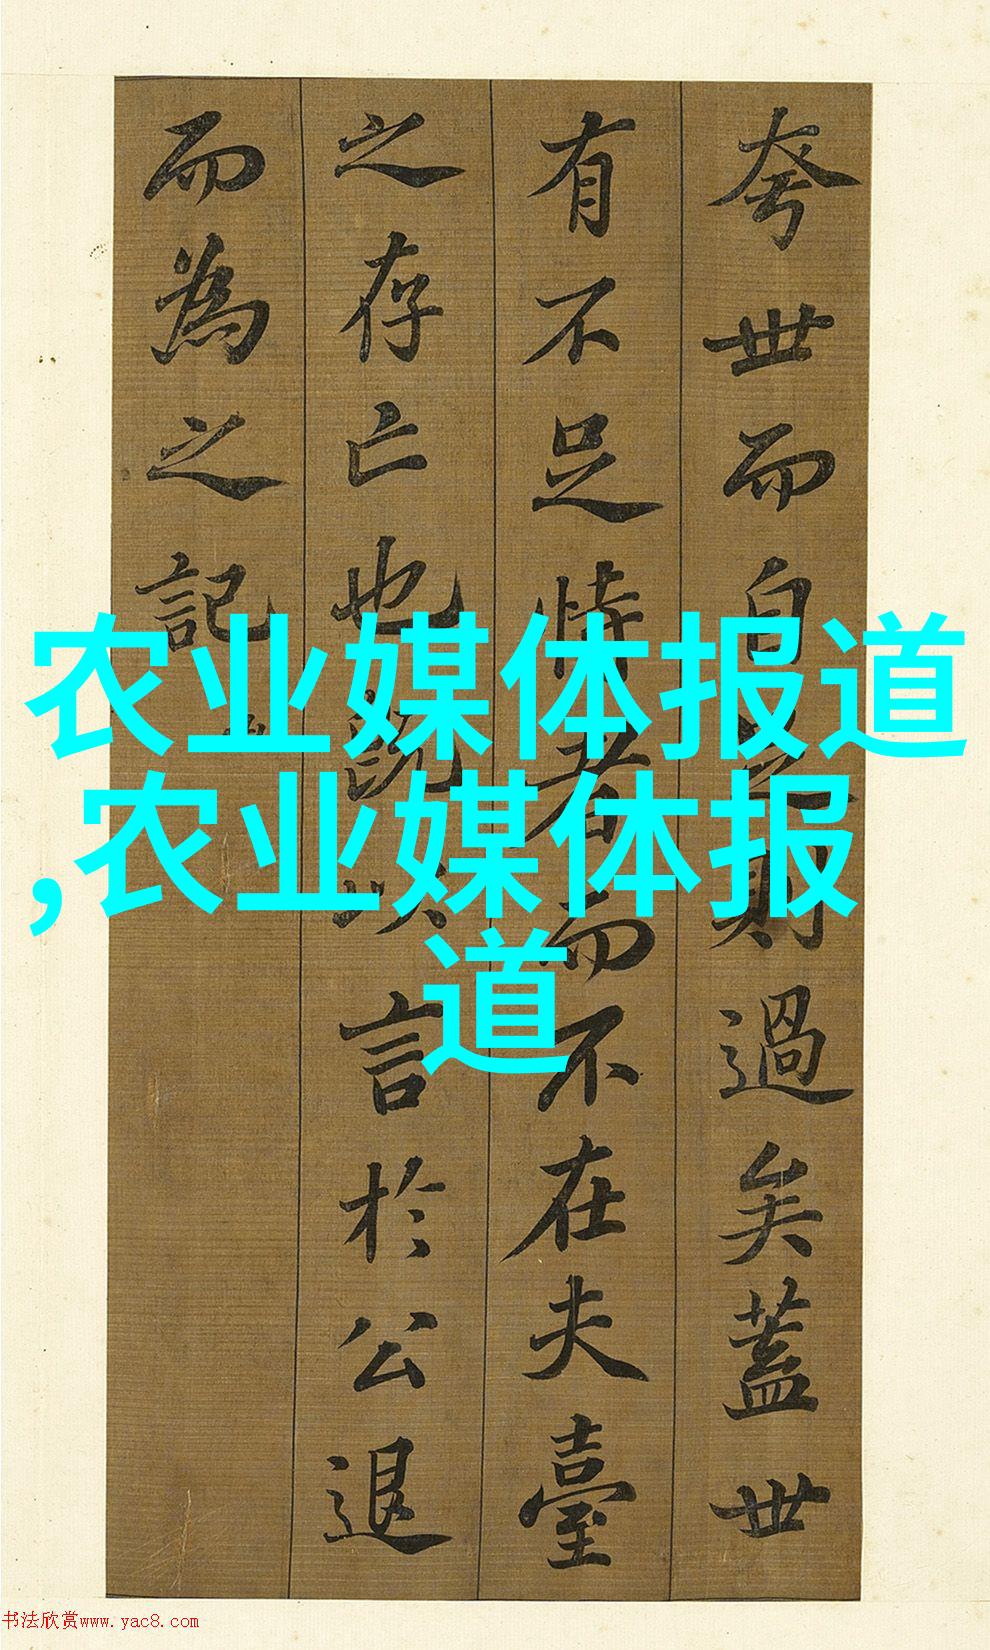 夸世而自足則過矣蓋世
有不足恃者而不在夫臺
之存亡也既以言於公退
而為之記
农业媒体报道
,农业媒体报
道
书法欣赏www.yac8.com